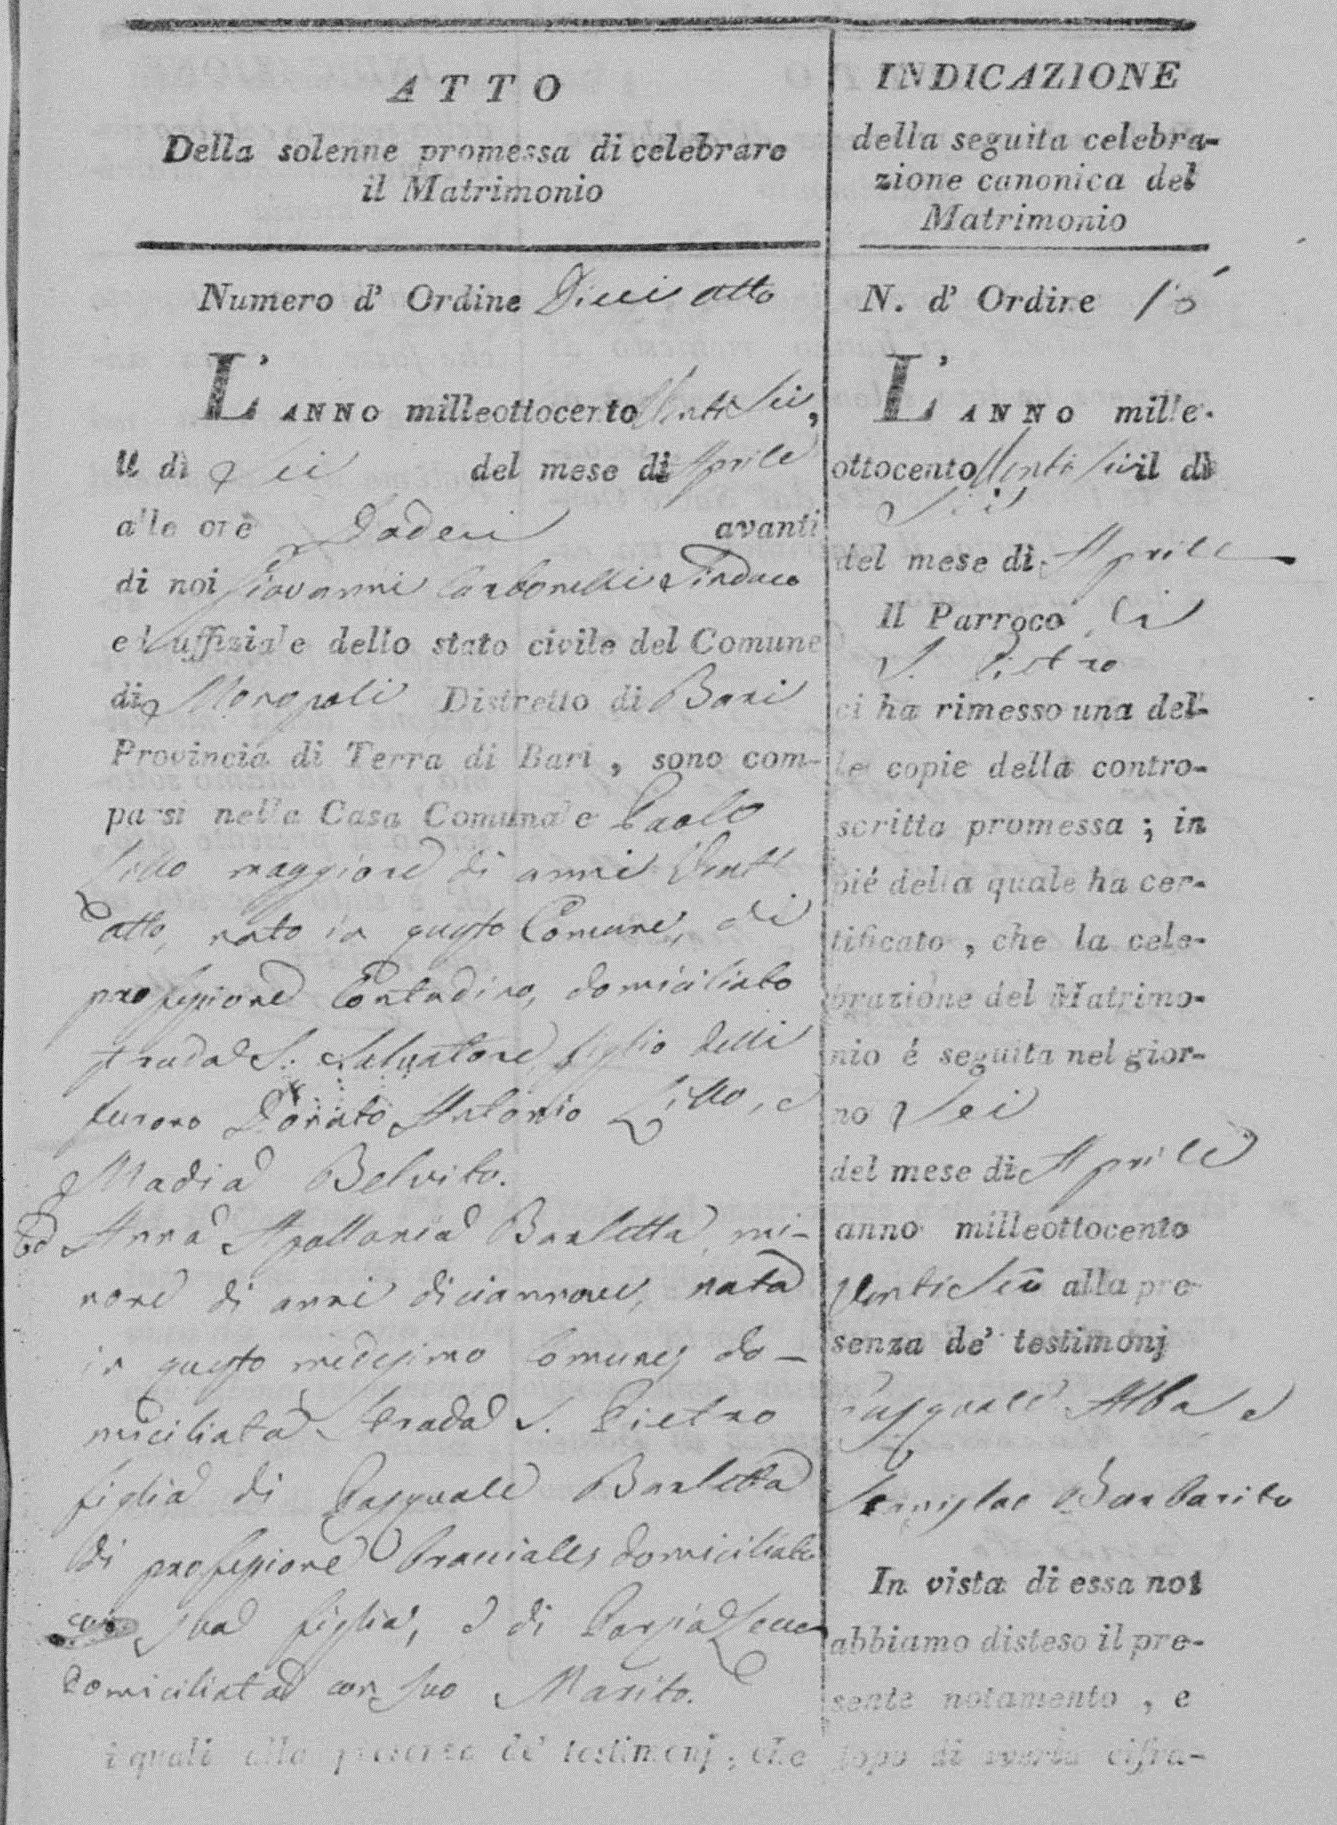 ATTO
Della solenne promessa di celebrare
il Matrimonio
Numero d' Ordine Dieci otto
L'ANNO milleottocento Venti Sei,
il dì Sei del mese di Aprile
alle ore Dodeci avanti
di noi Giovanni Carbonelli Sindaco
ed uffiziale dello stato civile del Comune
di Monopoli Distretto di Bari
Provincia di Terra di Bari, sono com-
parsi nella Casa Comunale Paolo
Lillo maggiore di anni Vent
otto, nato in questo Comune, di
professione Contadino, domiciliato
strada S. Salvatore, figlio delli
furono Donato Antonio Lillo, e
Madia Belvito.
Ed Anna Apollonia Barletta, mi-
nore di anni diciannove, nata
in questo medesimo Comune, do-
miciliata strada S. Pietro
figlia di Pasquale Barletta
di professione bracciale, domiciliato
con sua figlia, e di
domiciliata con suo Marito.
i quali alla presenza de' testimonj, che
INDICAZIONE
della seguita celebra-
zione canonica del
Matrimonio
N. d' Ordine 18
L'ANNO mille-
ottocento Venti Sei il dì
Sei
del mese di Aprile
Il Parroco di
S. Pietro
ci ha rimesso una del-
le copie della contro-
scritta promessa; in
piè della quale ha cer-
tificato, che la cele-
brazione del Matrimo-
nio è seguita nel gior-
no Sei
del mese di Aprile
anno milleottocento
Venti Sei alla pre-
senza de' testimonj
Pasquale Alba e
Barbarito
In vista di essa noi
abbiamo disteso il pre-
sente notamento, e
dopo di averlo cifra-